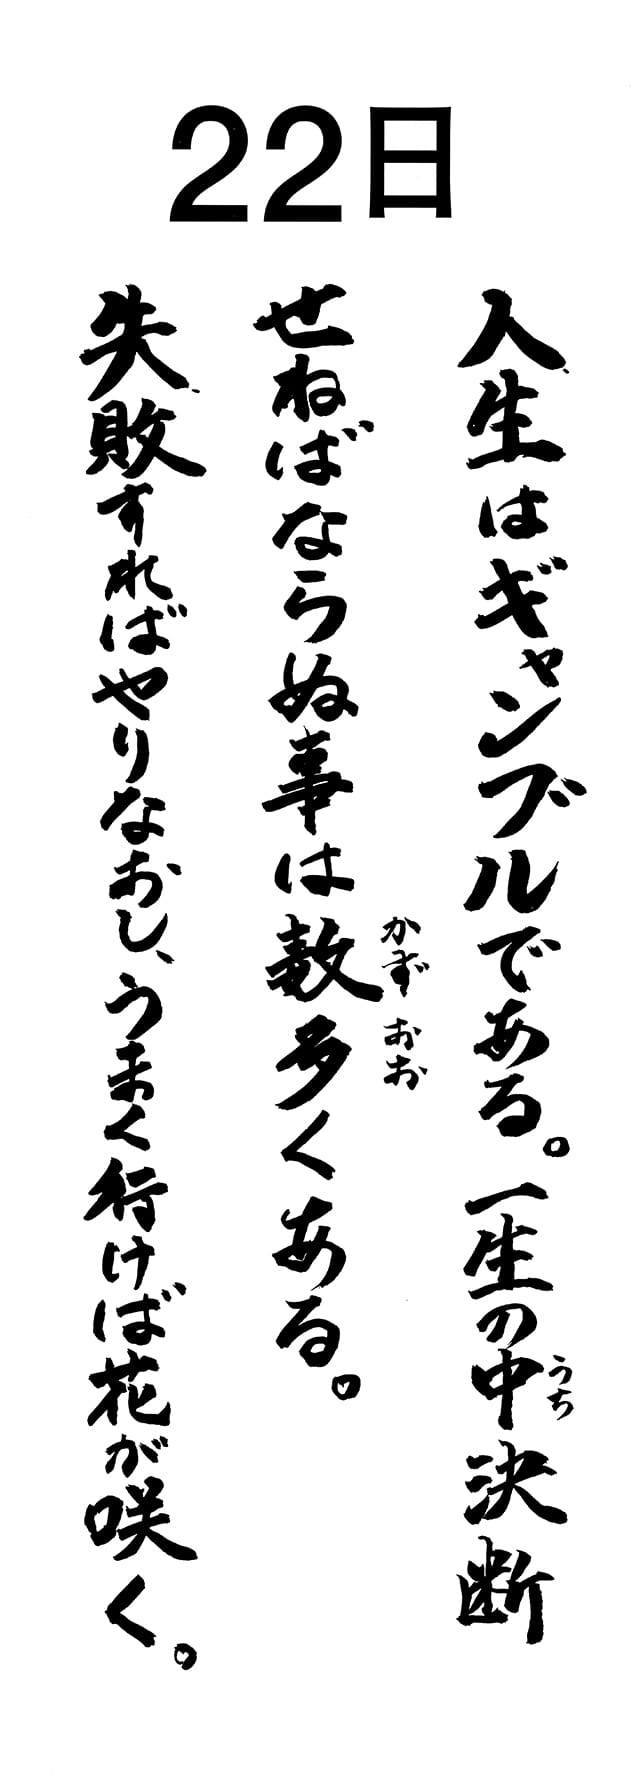 22日
人生はギャンブルである。一生の中決断
うち
せねばならぬ事は数多くある。
かずおお
失敗すればやりなおし、うまく行けば花が咲く。